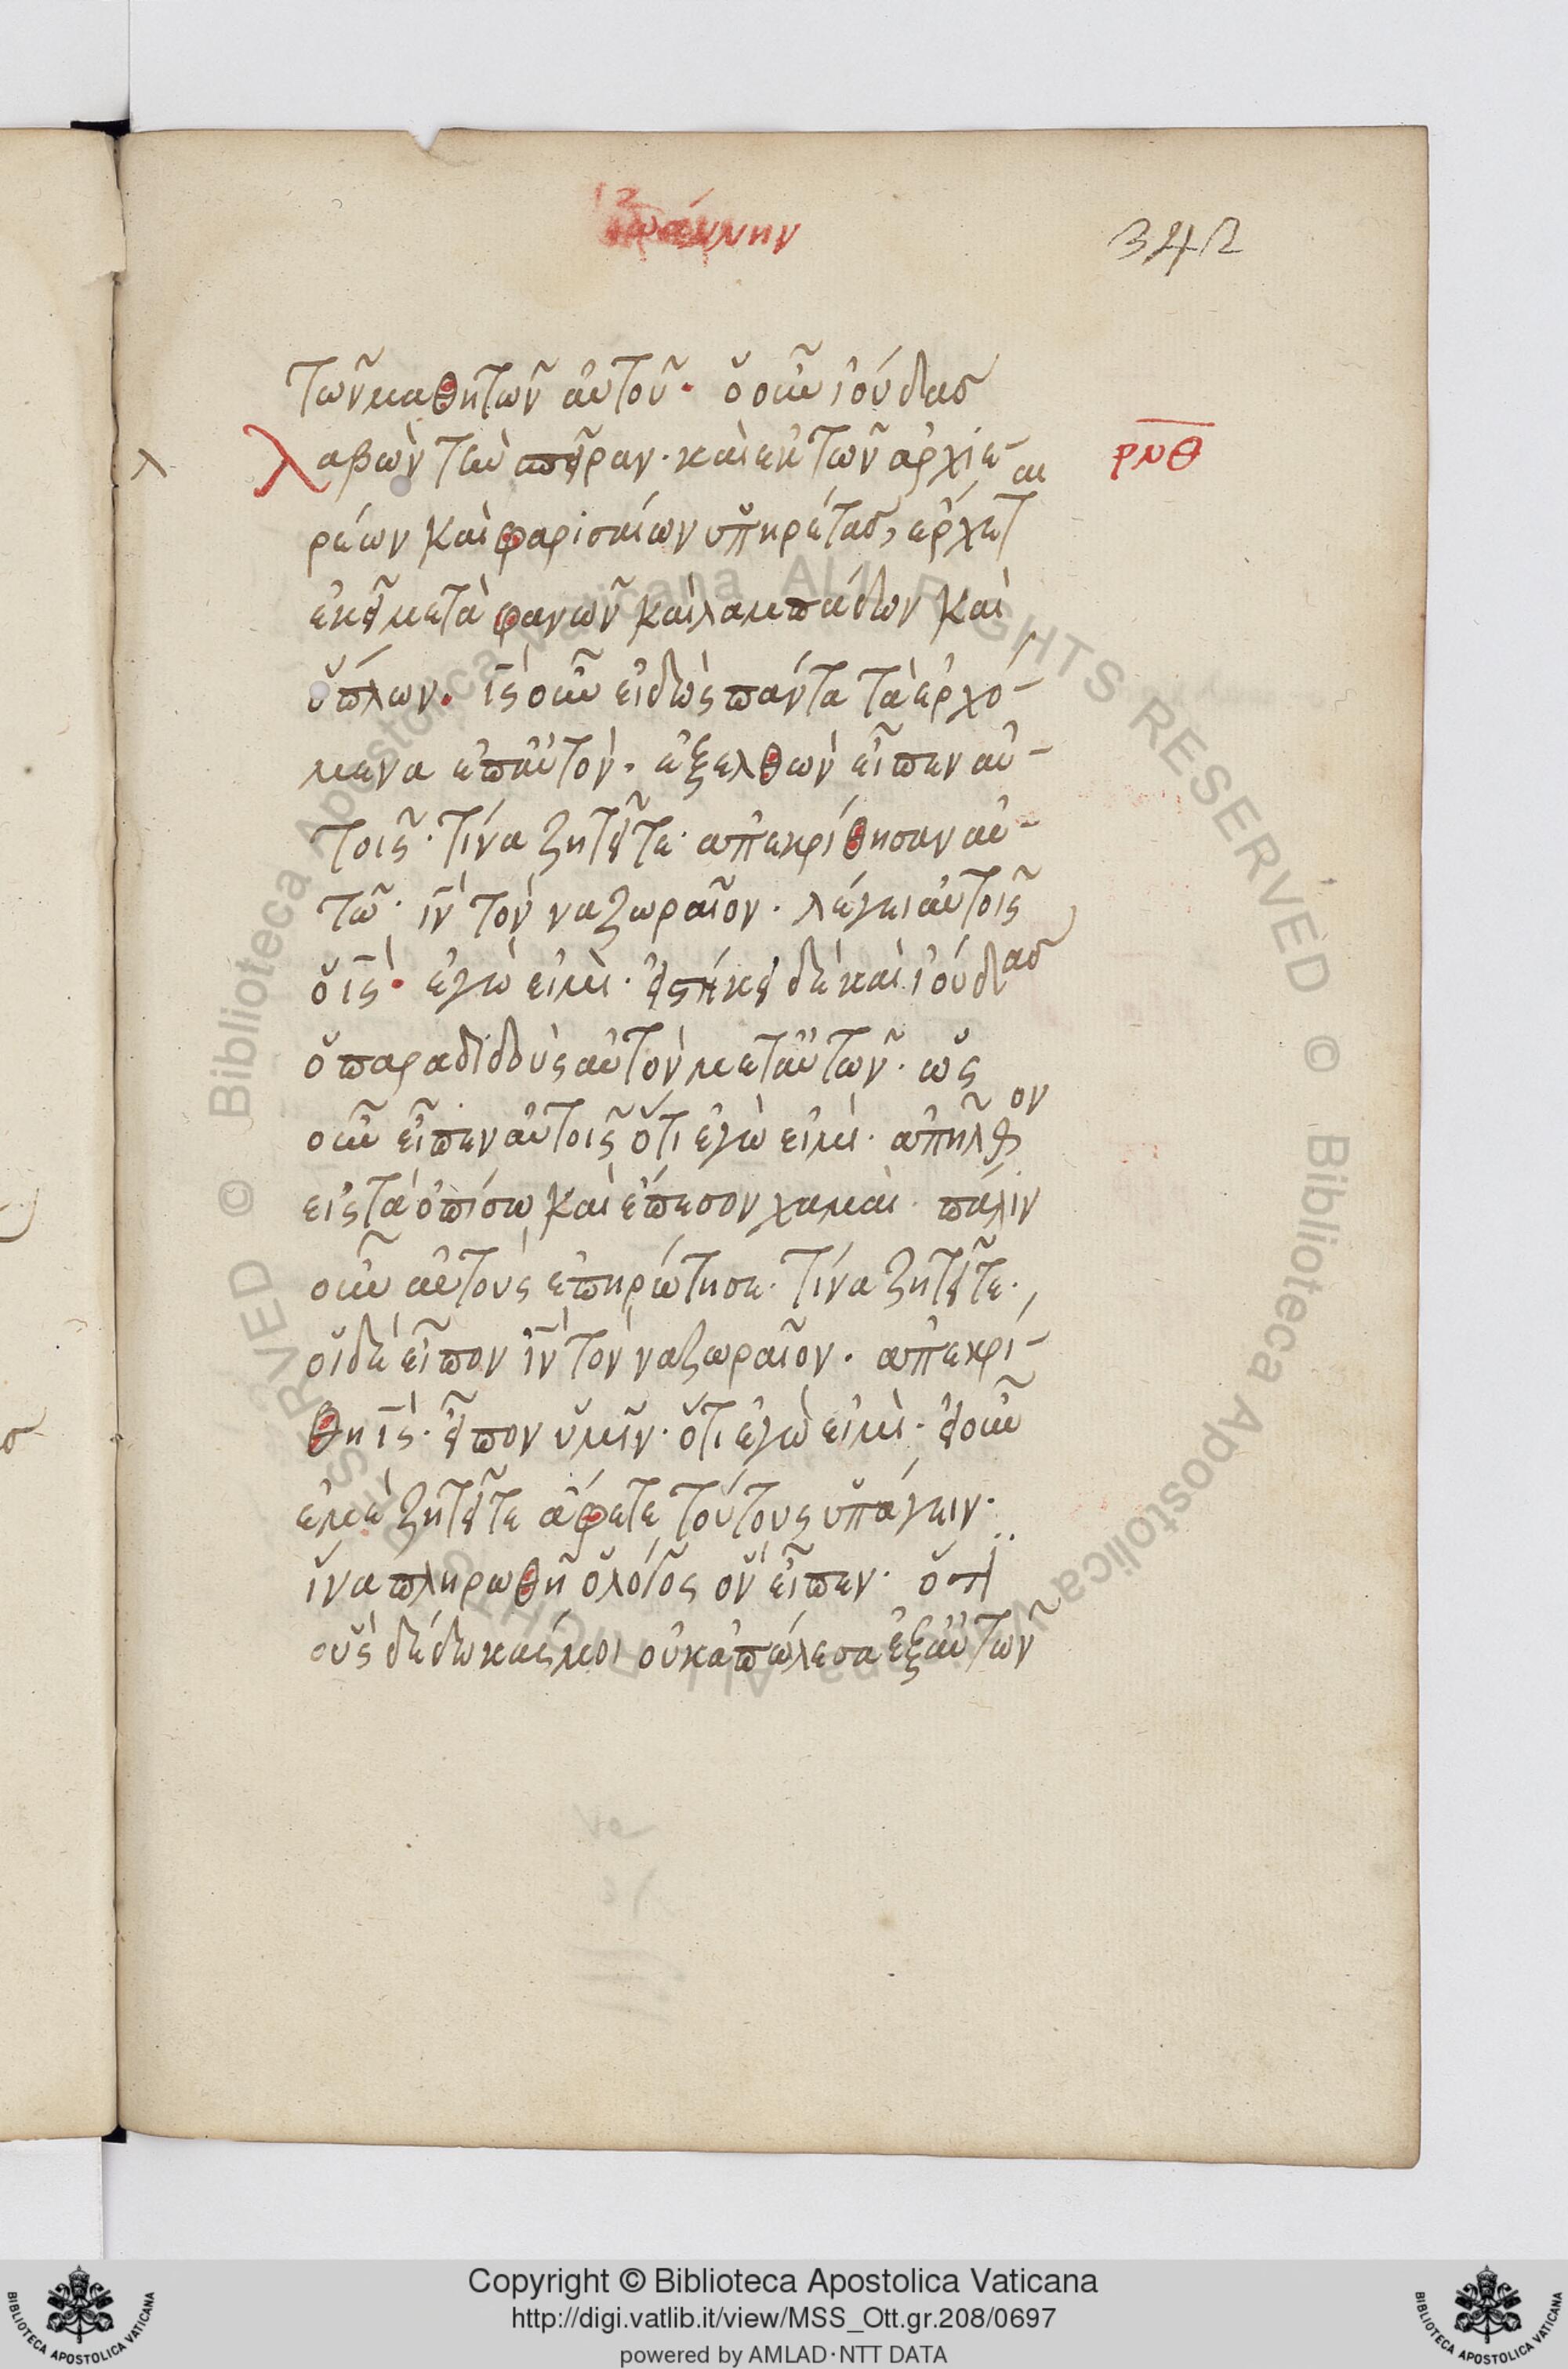 ἰωάννην
342
τῶν μαθητῶν αὐτοῦ· ὁ οὖν ἰούδας
λαβὼν τὴν σπεῖραν· καὶ ἐκ τῶν ἀρχιε-
ρνθ
ρέων καὶ φαρισαίων ὑπηρέτας, ἔρχεται
ἐκεῖ μετὰ φανῶν καὶ λαμπάδων καὶ
ὅπλων. ις οὖν εἰδὼς πάντα τὰ ἐρχό-
μενα ἐπ αὐτὸν. ἐξελθὼν εἶπεν αὐ-
τοῖς· τίνα ζητεῖτε· ἀπεκρίθησαν αὐ-
τῶ· ιν τὸν ναζωραῖον· λέγει αὐτοῖς
ὁ ις· ἐγώ εἰμι· εἱστήκει δὲ καὶ ἰούδας
ὁ παραδιδοὺς αὐτὸν μετ αὐτῶν· ὡς
οὖν εἶπεν αὐτοῖς ὅτι ἐγώ εἰμι· ἀπῆλθον
εἰς τὰ ὀπίσω καὶ ἔπεσον χαμαὶ· πάλιν
οὖν αὐτοὺς ἐπηρώτησε· τίνα ζητεῖτε·
οἱ δὲ εἶπον ιν τὸν ναζωραῖον· ἀπεκρί-
θη ις· εἶπον ὑμῖν· ὅτι ἐγώ εἰμι· εἰ οὖν
ἐμὲ ζητεῖτε ἄφετε τούτους ὑπάγειν·
ἵνα πληρωθῆ ὁ λόγος ὃν εἶπεν· ὅτι
οὓς δέδωκάς μοι οὐκ ἀπώλεσα ἐξ αὐτῶν
Copyright © Biblioteca Apostolica Vaticana
http://digi.vatlib.it/view/MSS_Ott.gr.208/0697
powered by AMLAD·NTT DATA